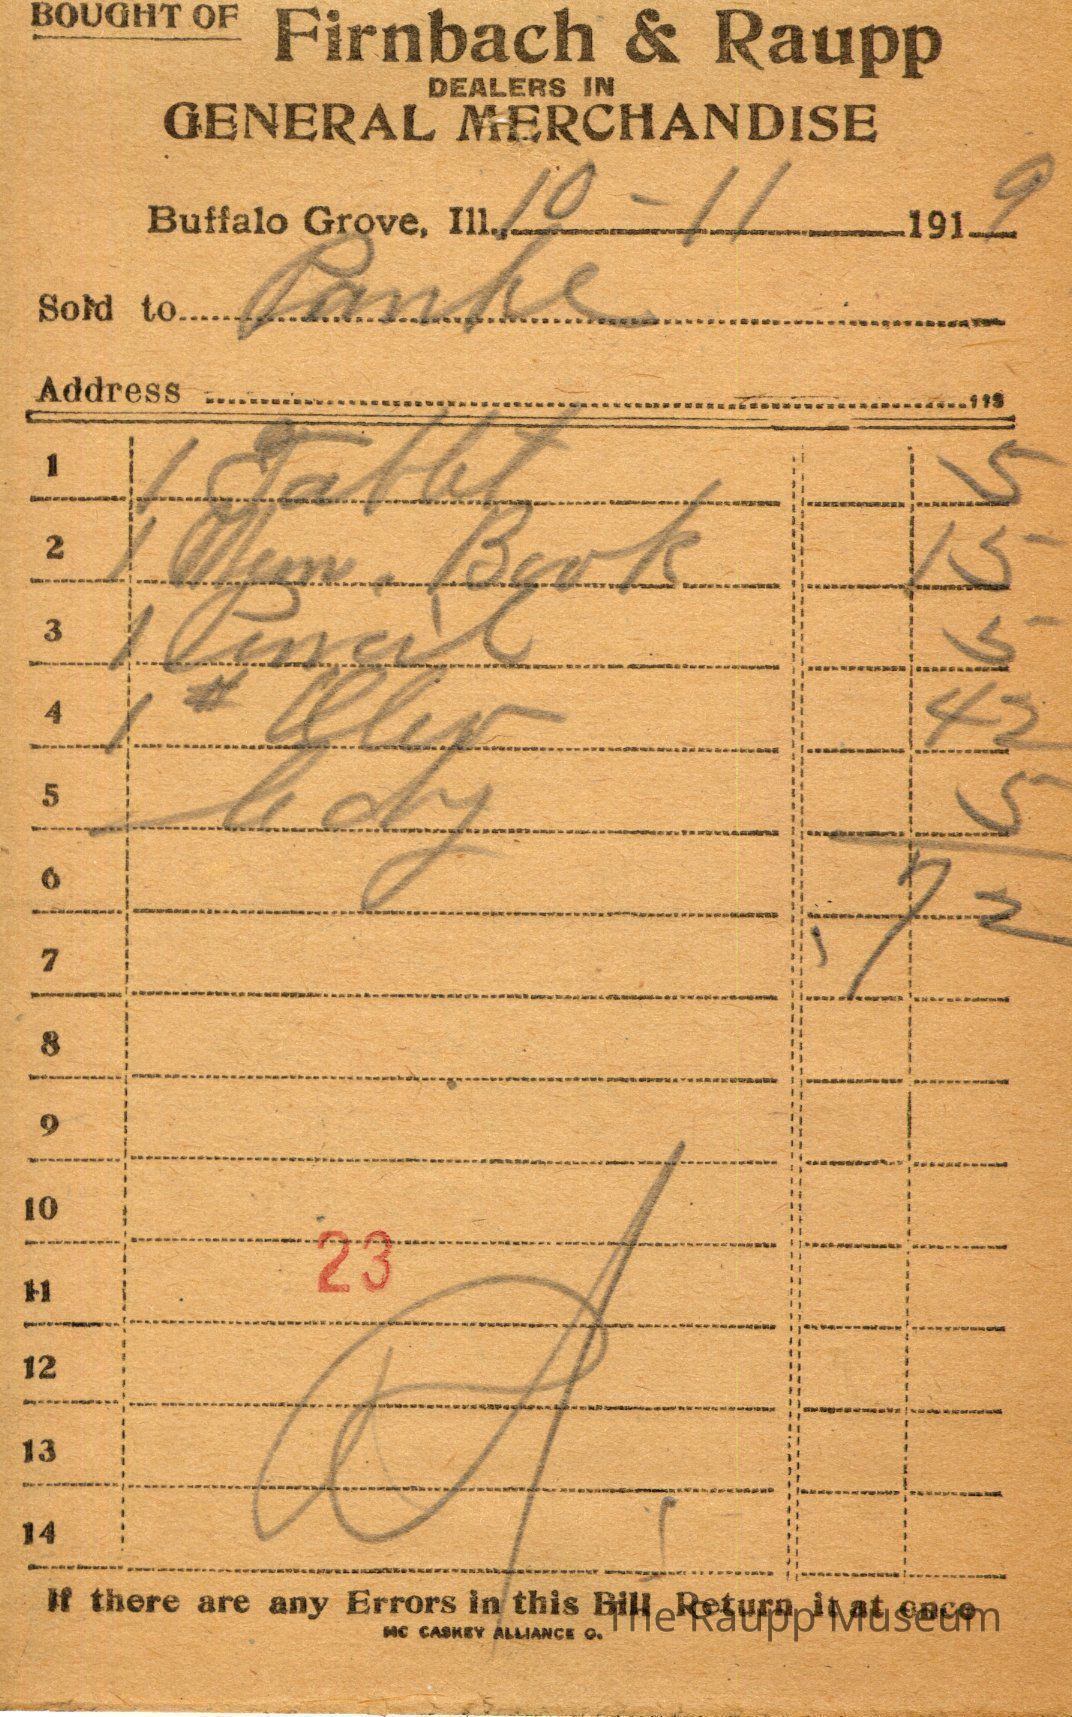 BOUGHT OF Firnbach & Raupp
DEALERS IN
GENERAL MERCHANDISE
Buffalo Grove, Ill., 10-11 1919
Sold to Panke
Address
1 1 Tablet 5
2 1 Mem. Book 15
3 1 Pencil 5
4 1 # Oleo 42
5 Cdy 5
6 .72
7
8
9
10
23
11
12
13
14
If there are any Errors in this Bill Return it at once
The Raupp Museum
MC CASKEY ALLIANCE O.